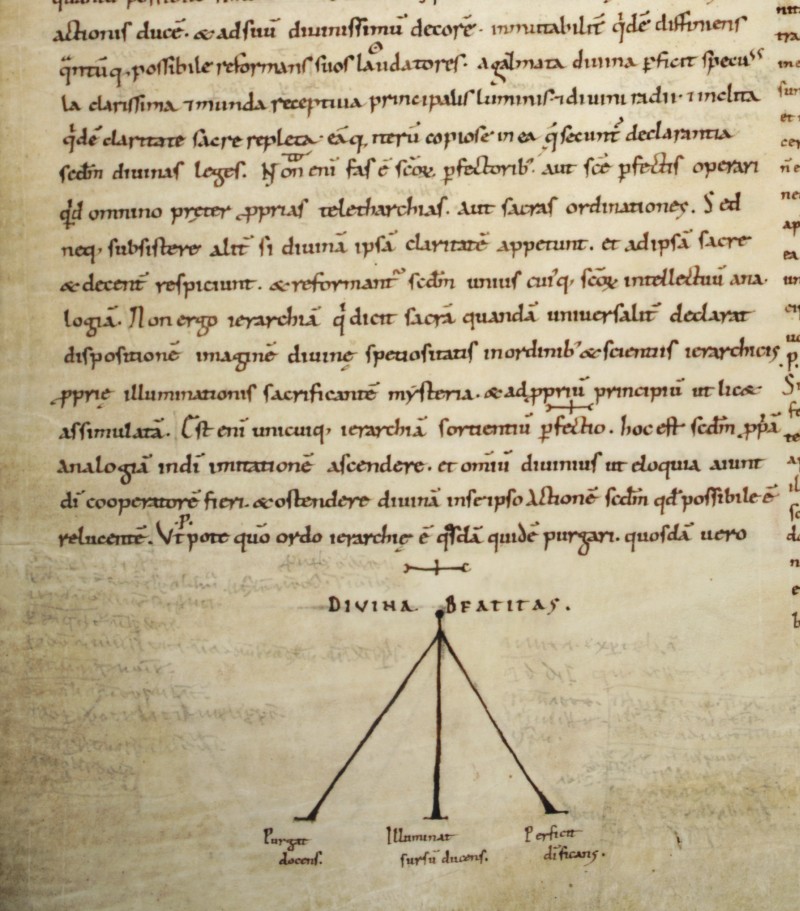 actionis ducē. & ad suū diuinissimū decorē. inmutabilit̄ qͥdē diffiniens
qͣntūq, possibile reformans suos laudatores. agalmata diuina ꝑficit specu
la clarissima ⁊ munda receptiua principalis luminis. ⁊ diuini radii. ⁊ inclita
qͥdē claritate sacre repleta. eāq, iterū copiose in ea q̄ secunt̄ declarantia
scdm̄ diuinas leges. Non enī fas ē scōꝝ ꝑfectorib'. aut scē ꝑfectis operari
qͥd omnino pręter ꝓprias teletharchias. aut sacras ordinationes. Sed
neq, subsistere alit̄ si diuinā ipsā claritatē appetunt. et ad ipsā sacre
& decent̄ respiciunt. & reformant̄ scdm̄ unius cuiq, scōꝝ intellectuū ana
logiā. Non ergo ierarchiā qͥ dicit sacrā quandā uniuersalit̄ declarat
dispositionē imaginē diuinę speciositatis in ordinib' & scientiis ierarchicis
ꝓprię illuminationis sacrificantē mẏsteria. & ad ꝓpriū principiū ut lic&
assimulatā. Est enī unicuiq, ierarchiā sortientiū ꝑfectio. hoc est scdm̄ ꝓpͥā
Analogiā in dī imitationē ascendere. et omiū diuinius ut eloquia aiunt
dī cooperatorē fieri. & ostendere diuinā in se ipso Actionē scdm̄ qd̄ possibile ē
relucentē. Vt pote quō ordo ierarchię ē qͦsdā quidē purgari. quosdā uero
DIVINA. BEATITAS.
Purgat Illuminat Perficit
docens. sursū ducens. dīficans.